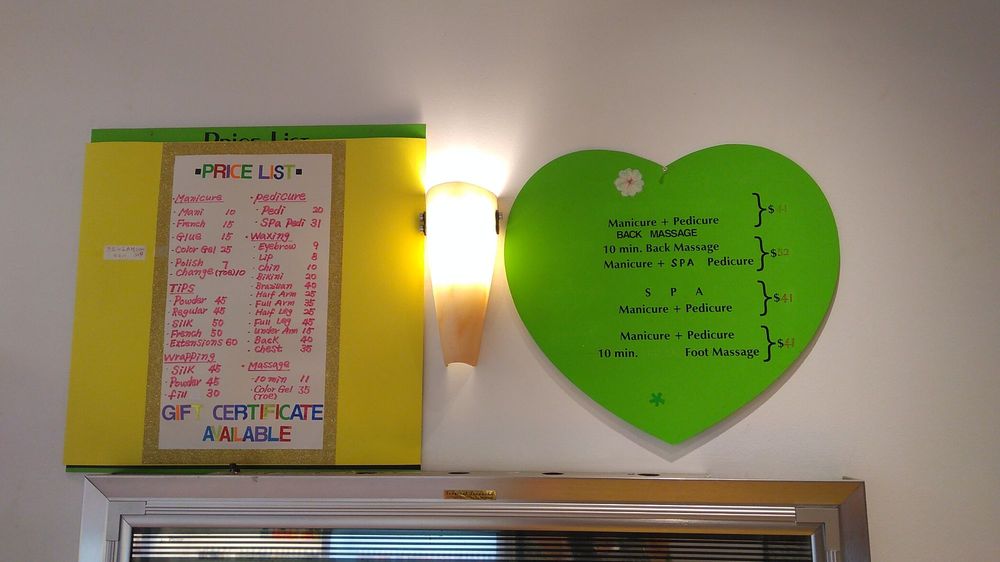 Price List
PRICE LIST
Manicure
Mani 10
French 15
Glue 15
Color Gel 25
Polish 7
Change (TOE) 10
TIPS
Powder 45
Regular 45
Silk 50
French 50
Extensions 60
Wrapping
Silk 45
Powder 45
fill 30
Pedicure
Pedi 20
Spa Pedi 31
Waxing
Eyebrow 9
Lip 8
Chin 10
Bikini 20
Brazilian 40
Half Arm 25
Full Arm 35
Half Leg 25
Full Leg 45
Under Arm 15
Back 40
Chest 35
Massage
10 min 11
Color Gel 35
(TOE)
GIFT CERTIFICATE
AVAILABLE
Manicure + Pedicure
BACK MASSAGE
$41
10 min. Back Massage
Manicure + SPA Pedicure
$52
S P A
Manicure + Pedicure
$41
Manicure + Pedicure
10 min. Foot Massage
$41